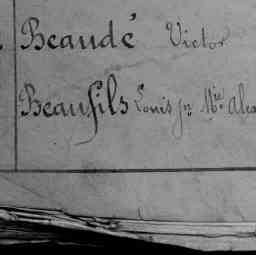 Beaudé Victor
Beaufils Louis jn Mie Alex